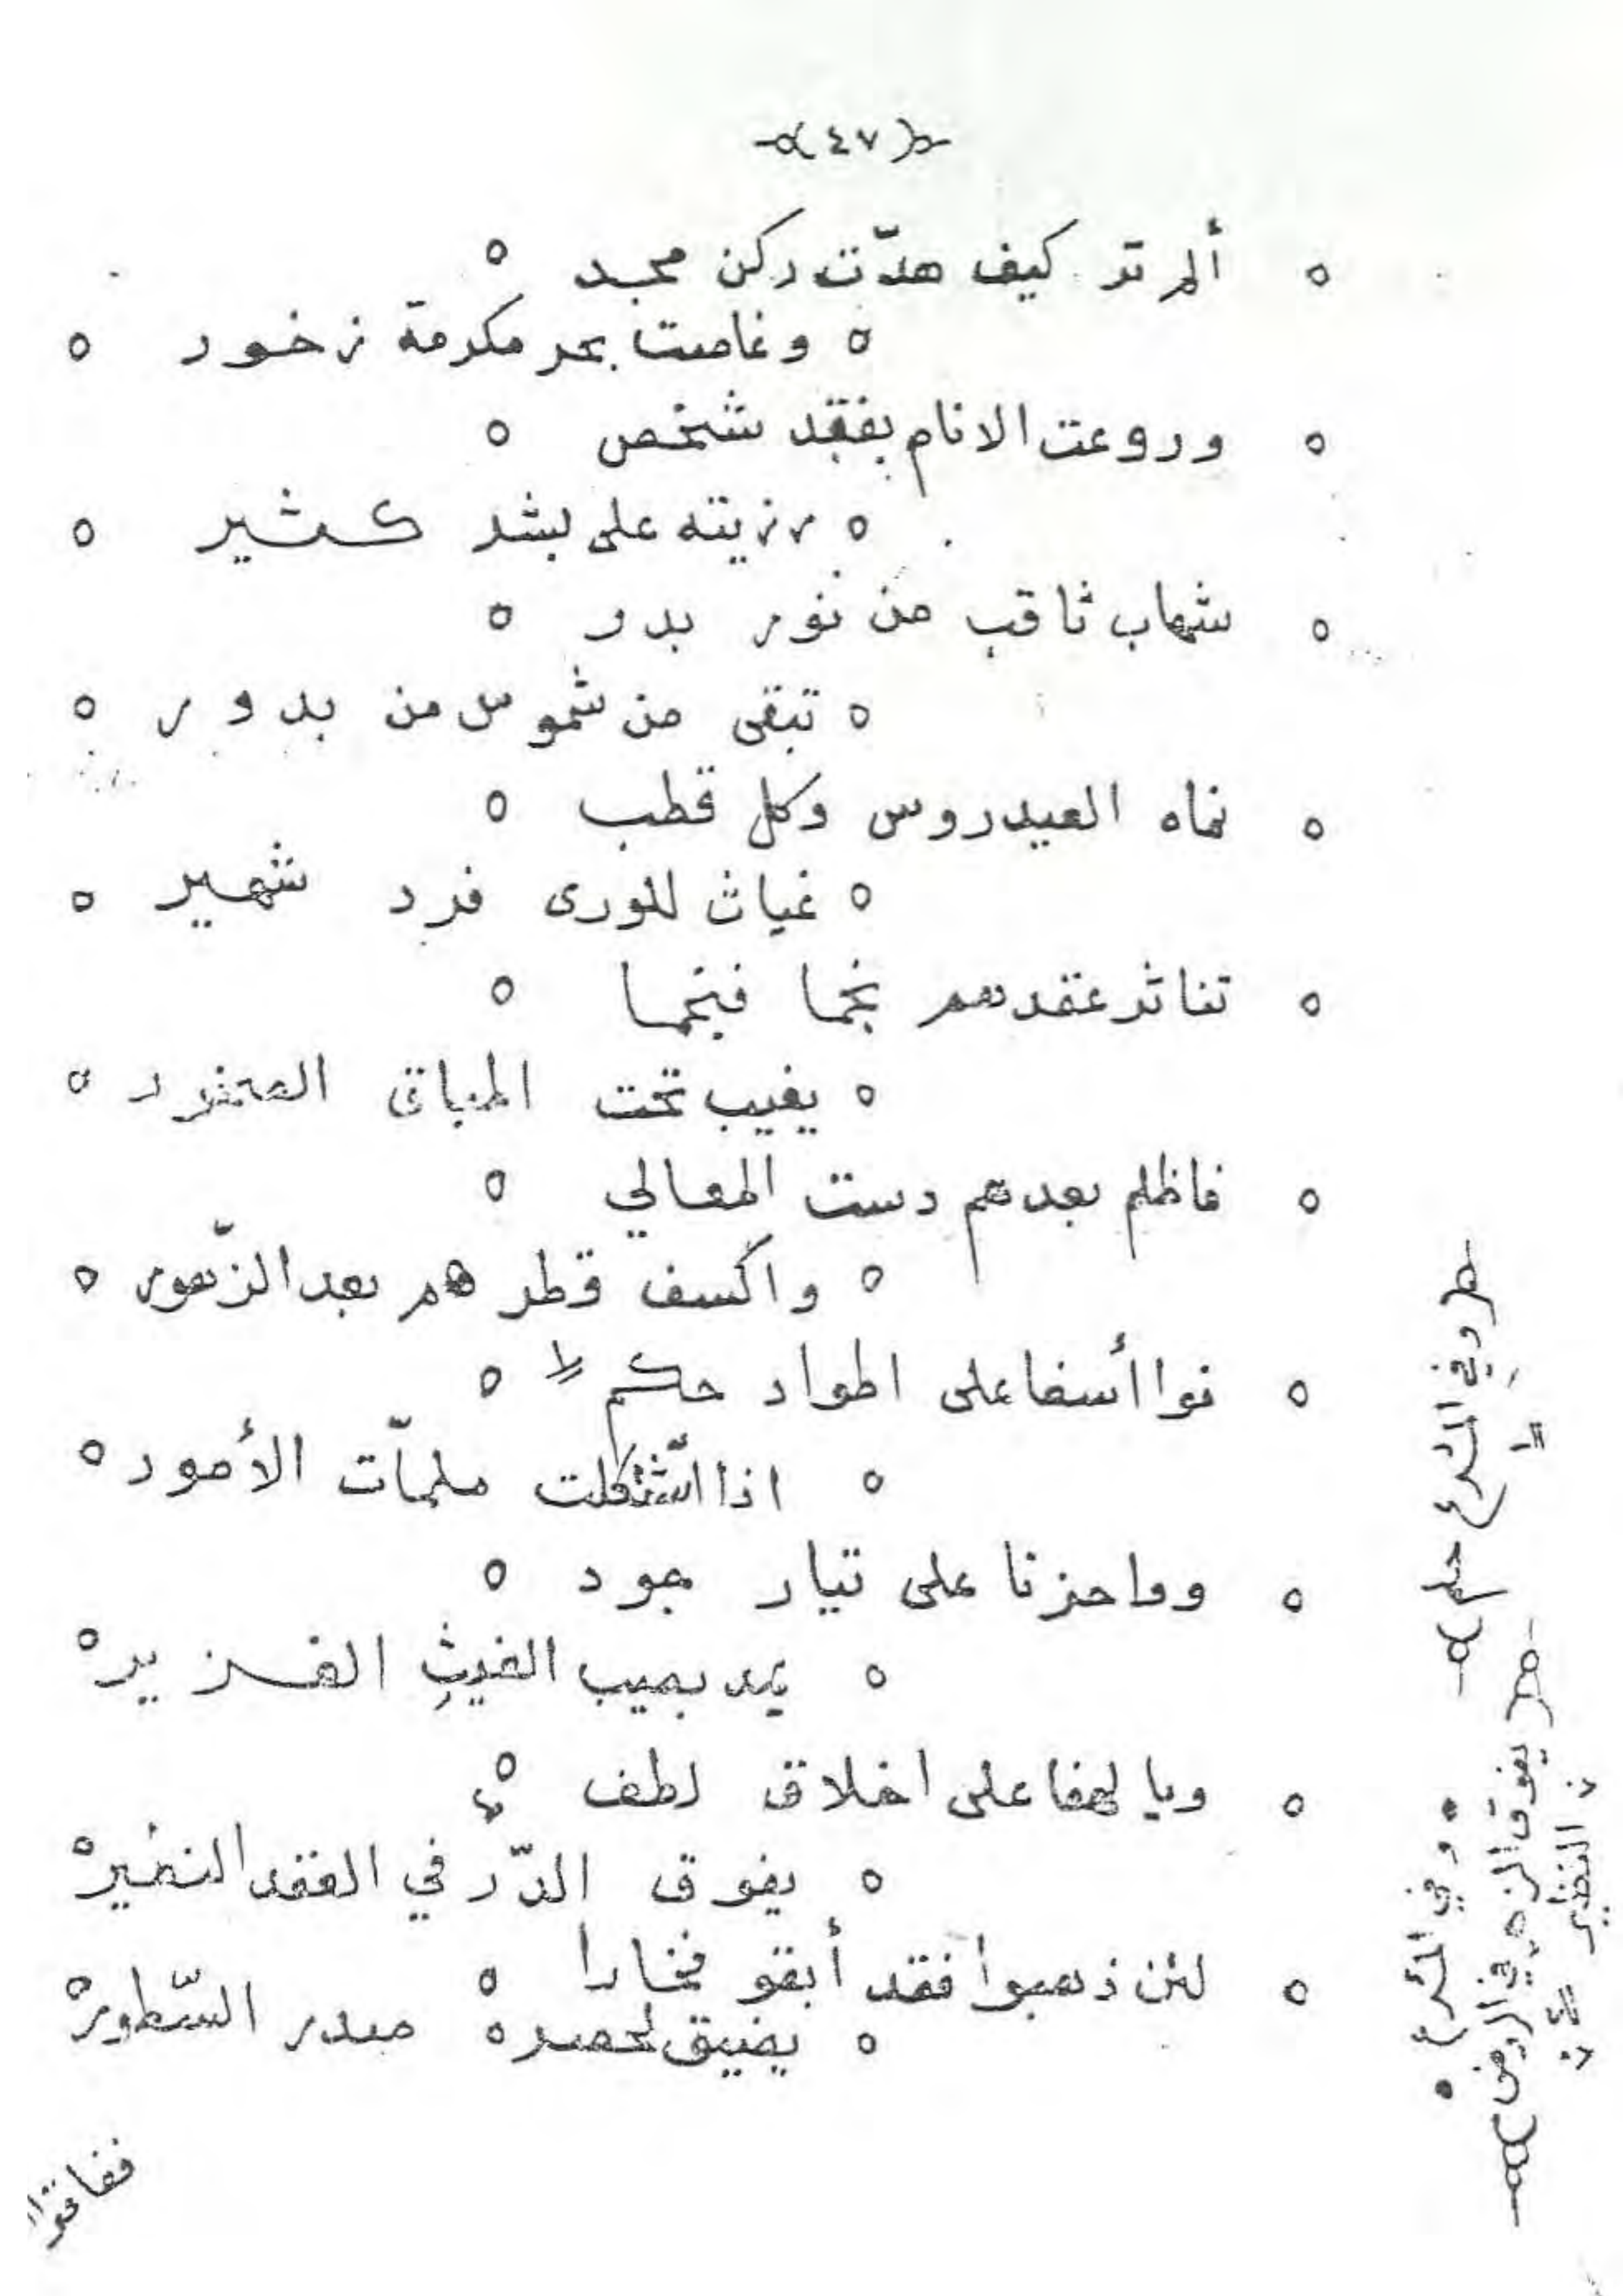 (٤٧)
ألم تر كيف هدّت ركن مجد
وغاصت بحر مكرمة زخور
وروعت الانام بفقد شخص
رزيته على بشر كثير
شهاب ثاقب من نور بدر
تبقى من شموس من بدور
نماه العيدروس وكل قطب
غياث للورى فرد شهير
تناثر عقدهم نجما فنجما
يغيب تحت الصخور
فاظلم بعدهم دست المعالي
واكسف قطرهم بعد الزّهور
فوا أسفا على اطواد حكم
اذا اشتكلت ملمّات الأمور
وواحزنا على تيار جود
يمد بصيب الغيثِ الغزير
ويا لهفا على اخلاق لطف
يفوق الدّر في العقد النضير
لئن ذهبوا فقد أبقو فخارا
يضيق لحصره صدر السّطور
وفي المشرع حلم
وفي المشرع
يفوق الزهر في الروض
النظير